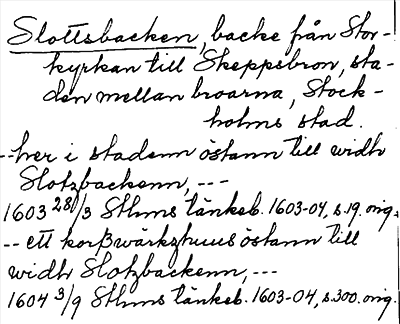 Slottsbacken, backe från Stor-
kyrkan till Skeppsbron, sta-
den mellan broarna, Stock-
holms stad.
-- her i stadenn östann till widh
Slotzbackenn, ---
1603 28/3 Sthms tänkeb. 1603-04, s. 19. orig.
-- ett korßwärkzhuus östann till
widh Slotzbackenn, ---
1604 3/9 Sthms tänkeb. 1603-04, s. 300. orig.